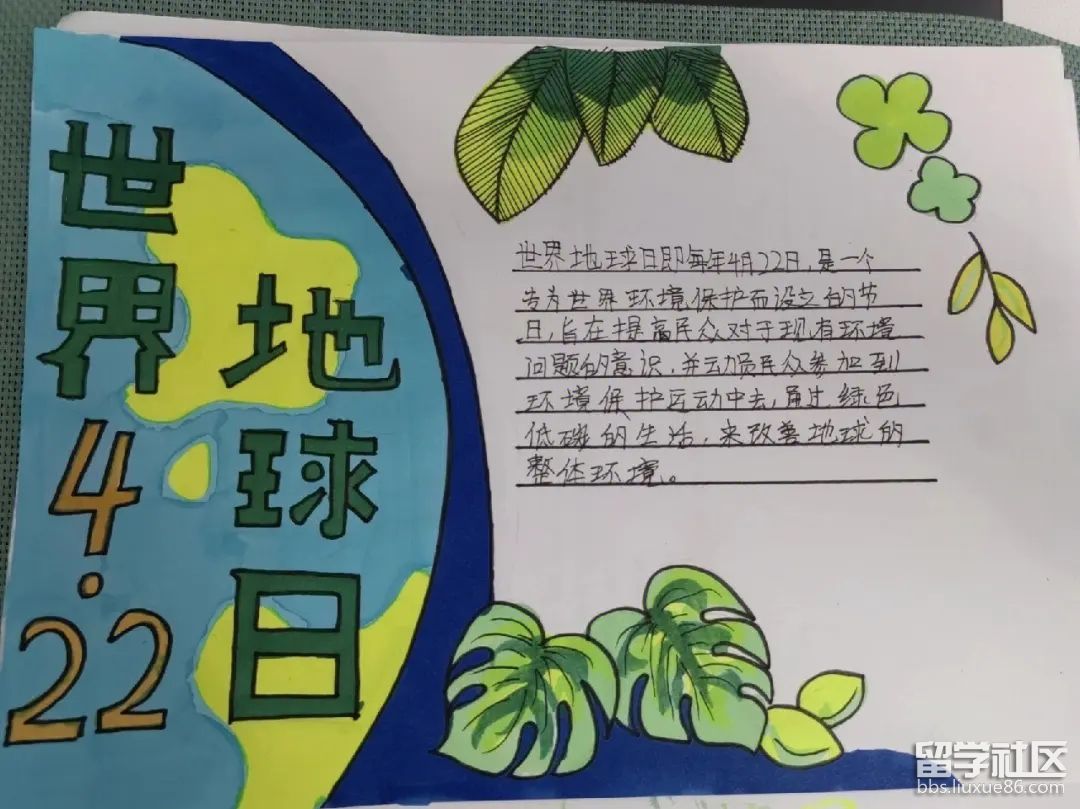 世界
地球日
4.22
世界地球日即每年4月22日,是一个
专为世界环境保护而设立的节
日,旨在提高民众对于现有环境
问题的意识,并动员民众参加到
环境保护运动中去,通过绿色
低碳的生活,来改善地球的
整体环境。
留学社区
bbs.liuxue86.com